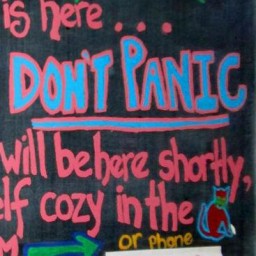 is here . . .
DON'T PANIC
will be here shortly,
elf cozy in the
or phone